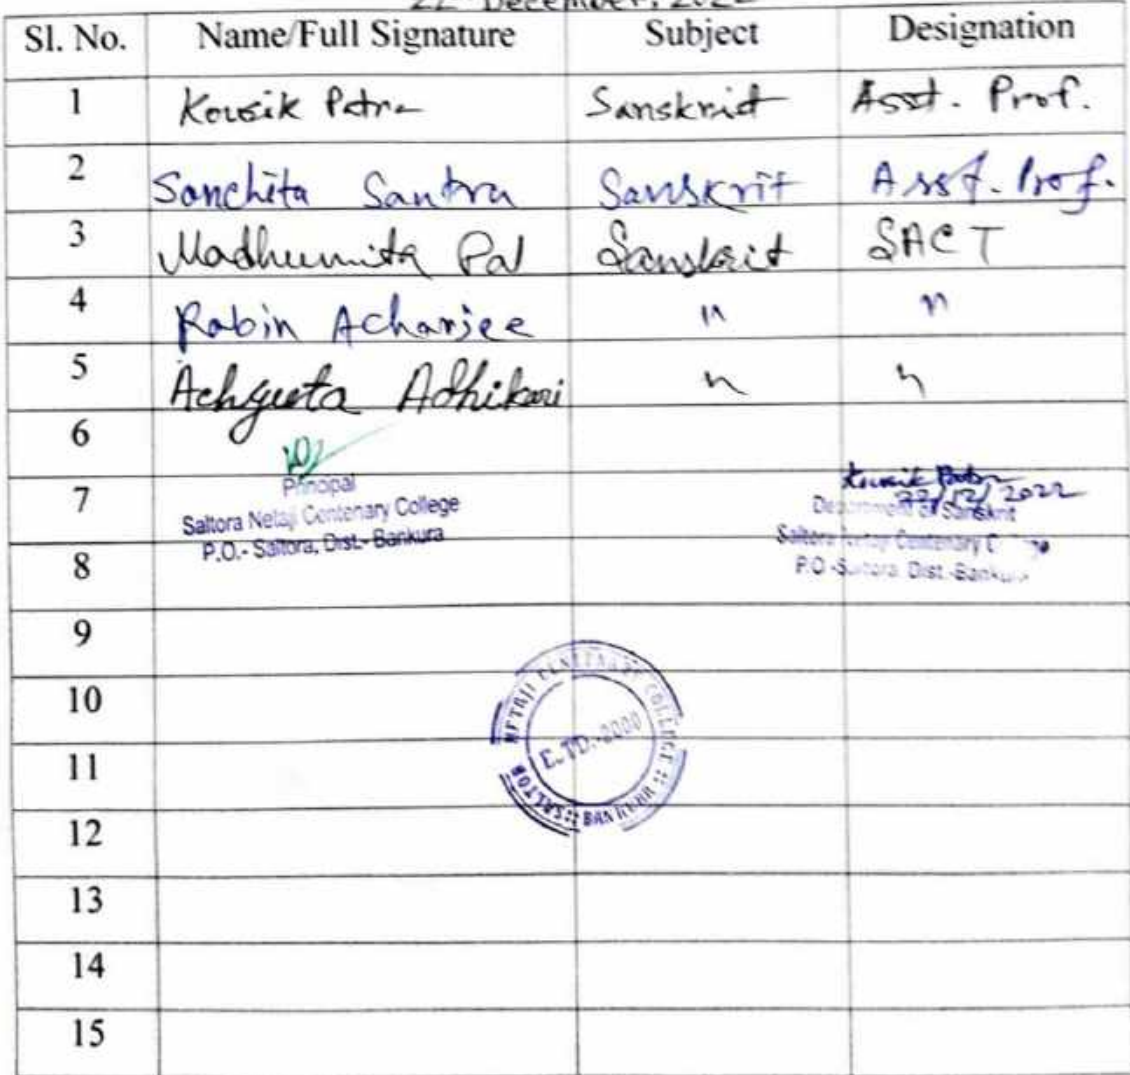 22 December, 2022
Sl. No. Name/Full Signature Subject Designation
1 Kousik Patra Sanskrit Asst. Prof.
2 Sanchita Santra Sanskrit Asst. Prof.
3 Madhumita Pal Sanskrit SACT
4 Rabin Acharjee " "
5 Achyuta Adhikari " "
6
Principal
7
Saltora Netaji Centenary College
P.O.- Saltora, Dist.- Bankura
Kousik Patra
22/12/2022
Department of Sanskrit
Saltora Netaji Centenary College
P.O.-Saltora, Dist.-Bankura
8
9
NETAJI CENTENARY COLLEGE :: BANKURA :: SALTORA
ETD.-2000
10
11
12
13
14
15